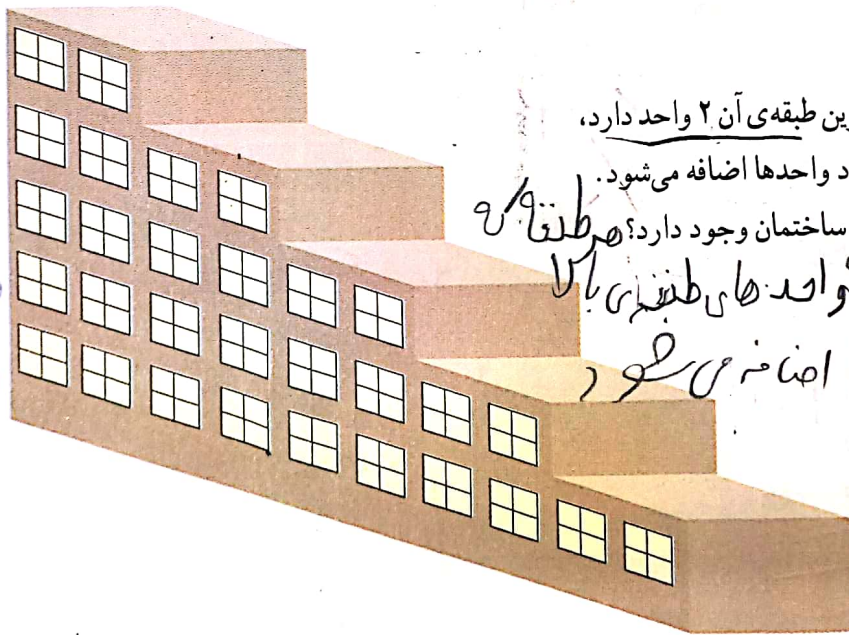 ین طبقه‌ی آن ۲ واحد دارد،
د واحدها اضافه می‌شود.
ساختمان وجود دارد؟ هر طبقه که
واحد های طبقه ی بالا
اضافه می شود